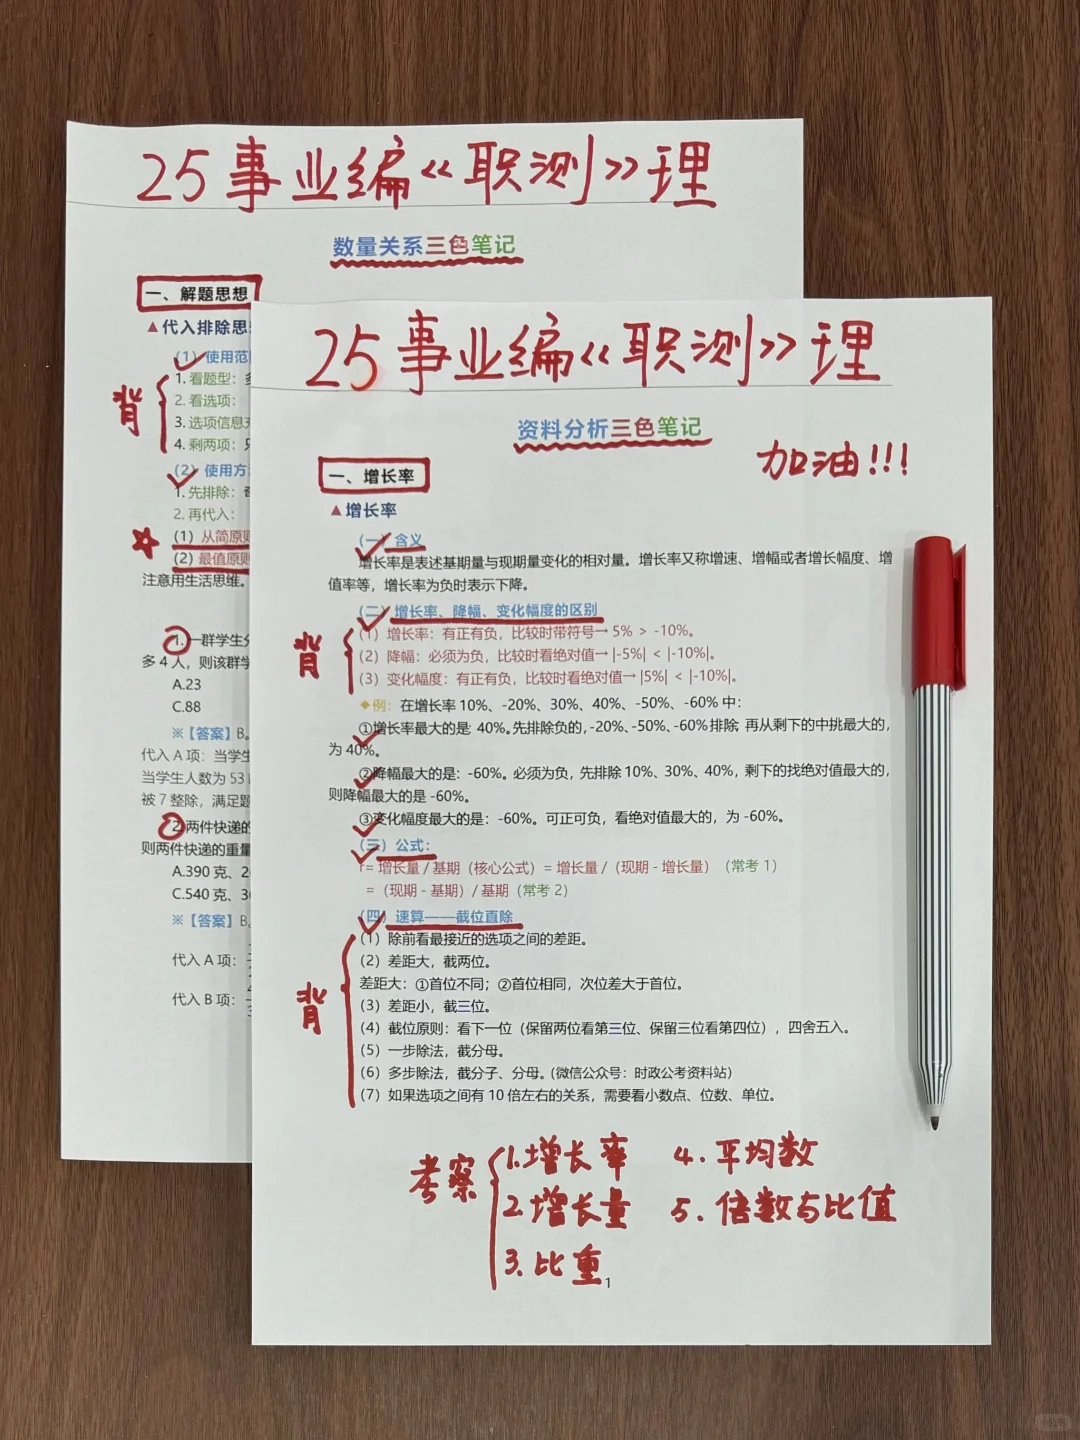 25事业编《职测》理
数量关系三色笔记
一、解题思想
▲代入排除思
(1) 使用范
背
1. 看题型：
2. 看选项：
3. 选项信息
4. 剩两项：
(2) 使用方
1. 先排除：
2. 再代入：
(1) 从简原则
(2) 最值原则
注意用生活思维。
1. 一群学生分
多 4 人，则该群学
A.23
C.88
※【答案】B。
代入 A 项：当学生
当学生人数为 53
被 7 整除，满足题
2. 两件快递的
则两件快递的重量
A.390 克、2
C.540 克、3
※【答案】B。
代入 A 项：
代入 B 项：
25事业编《职测》理
资料分析三色笔记
加油!!!
一、增长率
▲增长率
(一) 含义
增长率是表述基期量与现期量变化的相对量。增长率又称增速、增幅或者增长幅度、增
值率等，增长率为负时表示下降。
(二) 增长率、降幅、变化幅度的区别
背
(1) 增长率：有正有负，比较时带符号→ 5% > -10%。
(2) 降幅：必须为负，比较时看绝对值→ |-5%| < |-10%|。
(3) 变化幅度：有正有负，比较时看绝对值→ |5%| < |-10%|。
◆例：在增长率 10%、-20%、30%、40%、-50%、-60% 中：
①增长率最大的是 40%。先排除负的，-20%、-50%、-60% 排除，再从剩下的中挑最大的，
为 40%。
②降幅最大的是：-60%。必须为负，先排除 10%、30%、40%，剩下的找绝对值最大的，
则降幅最大的是 -60%。
③变化幅度最大的是：-60%。可正可负，看绝对值最大的，为 -60%。
(三) 公式：
r= 增长量 / 基期（核心公式）= 增长量 /（现期 - 增长量）（常考 1）
=（现期 - 基期）/ 基期（常考 2）
(四) 速算——截位直除
背
(1) 除前看最接近的选项之间的差距。
(2) 差距大，截两位。
差距大：①首位不同；②首位相同，次位差大于首位。
(3) 差距小，截三位。
(4) 截位原则：看下一位（保留两位看第三位、保留三位看第四位），四舍五入。
(5) 一步除法，截分母。
(6) 多步除法，截分子、分母。（微信公众号：时政公考资料站）
(7) 如果选项之间有 10 倍左右的关系，需要看小数点、位数、单位。
考察
1.增长率 4.平均数
2.增长量 5.倍数与比值
3.比重
1